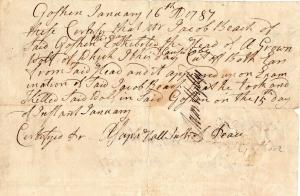 Goshen January 16th AD 1787
these Certify that Mr Jacob Beach of
Said Goshen Exhibited the Head of A Grown
Wolf of which I then Cut off Both Ears
from Said Head and it appeared on Exam
ination of Said Jacob Beach that he Took and
Killed Said Wolf in Said Goshen on the 15 day
of Instant January
Certified by Justice of Peace